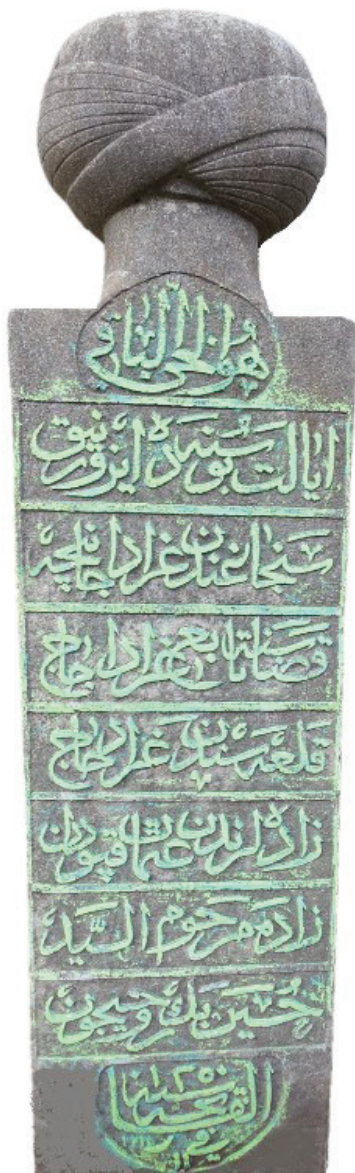 هو الحي الباقي
ايالت بوسنه ده ايزورنيق
سنجاغندن غراداچانيچه
قضاسنه تابع غراداچاج
قلعه سندن غراداچاج
زاده لرندن عثمان قپودان
زاده مرحوم السيد
حسين بك روحيچون
الفاتحه سنه ١٢٥٠